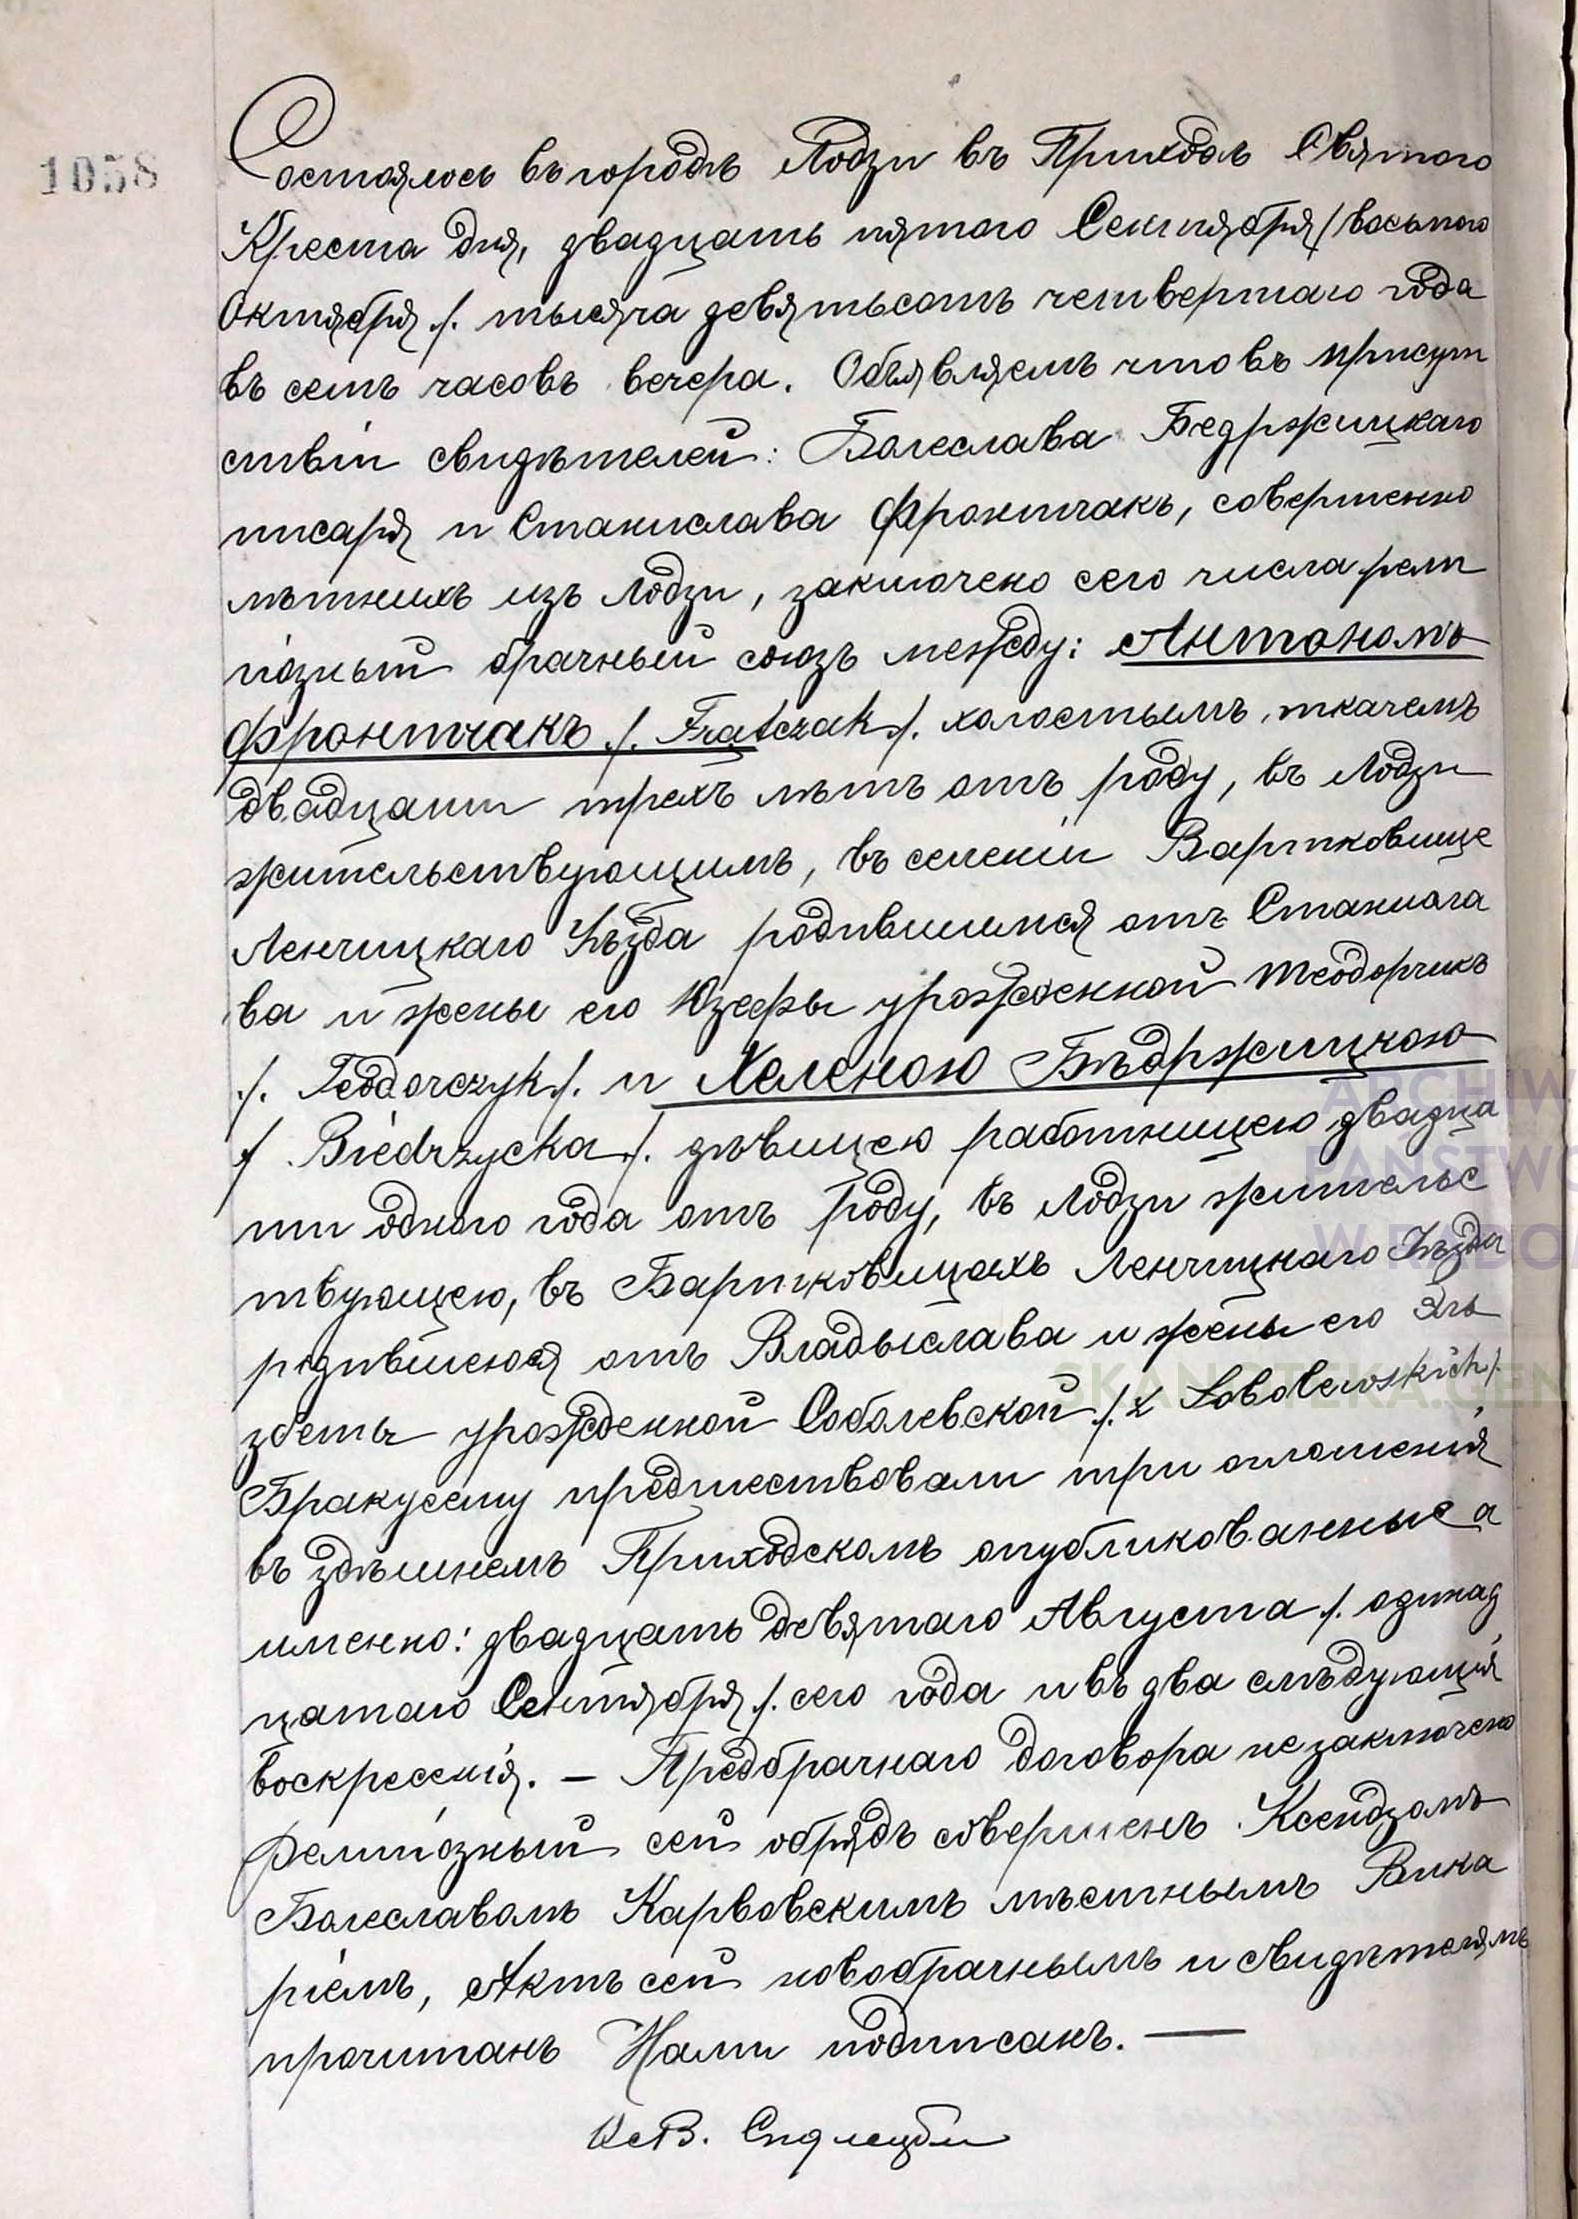 1058
Состоялось въ городѣ Лодзи въ Приходѣ Святого
Креста дня, двадцать пятого Сентября /восьмого
Октября ./. тысяча девятьсотъ четвертаго года
въ семь часовъ вечера. Объявляемъ что въ присут
ствіи свидѣтелей: Болеслава Беджицкаго
писаря и Станислава Фронтчакъ, совершенно
лѣтнихъ изъ Лодзи, заключено сего числа рели
гіозный брачный союзъ между: Антономъ
Фронтчакъ ./. Frątczak ./. холостымъ, ткачемъ
двадцати трехъ лѣтъ отъ роду, въ Лодзи
жительствующимъ, въ селеніи Вартковице
Ленчицкаго Уѣзда родившимся отъ Станисла
ва и жены его Юзефы урожденной Теодорчикъ
./. Teodorczyk ./. и Хеленою Бѣдржицкою
./. Biedrzycka ./. дѣвицею работницею двадца
ти одного года отъ роду, въ Лодзи жительс
твующею, въ Бартковицахъ Ленчицкаго Уѣзда
родившеюся отъ Владыслава и жены его Эль
збеты урожденной Соболевской ./. z Sobolewskich ./.
Браку сему предшествовали три оглашенія
въ здѣшнемъ Приходскомъ опубликованные а
именно: двадцать девятаго Августа ./. одинад
цатаго Сентября ./. сего года и въ два слѣдующія
воскресенія. – Предбрачнаго договора не заключено
Религіозный сей обрядъ совершенъ Ксендзомъ
Болеславомъ Карвовскимъ мѣстнымъ Вика
ріемъ, Актъ сей новобрачнымъ и свидѣтелямъ
прочитанъ Нами подписанъ. —
ARCHIW
PAŃSTWO
W RADOM
SKANOTEKA.GEN